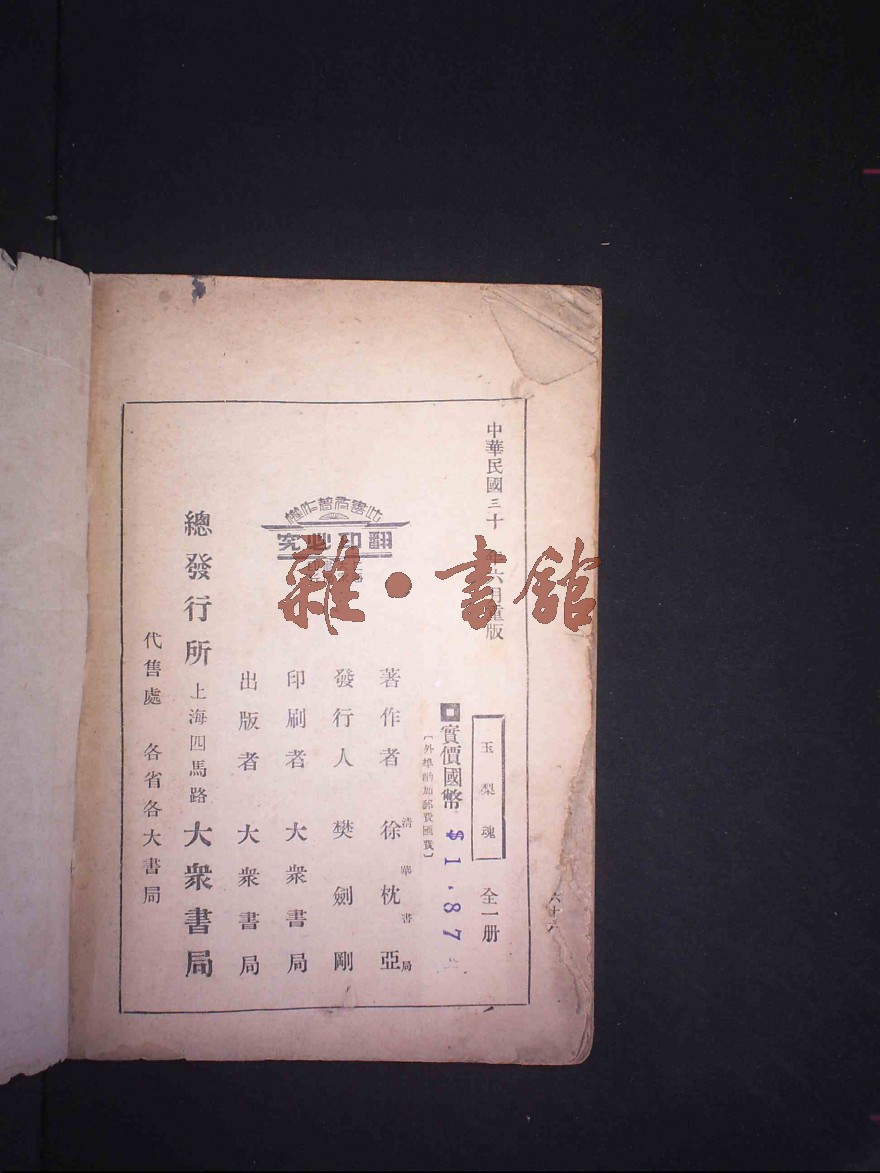 中華民國三十年六月重版
玉梨魂
全一册
實價國幣
$1.87
〔外埠酌加郵費匯費〕
清華書局
著作者 徐枕亞
發行人 樊劍剛
印刷者 大衆書局
出版者 大衆書局
此書有著作權
翻印必究
總發行所 上海四馬路 大衆書局
代售處 各省各大書局
雜·書館